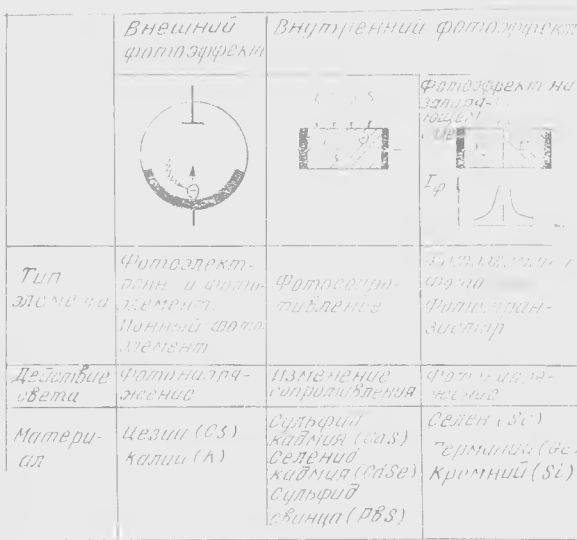 Внешний
фотоэффект
Внутренний фотоэффект
Фотоэффект на
запира-
ющем
Iφ
Тип
элемента
Фотоэлект-
элемент.
Ионный фото
элемент
Фотосопро-
тивление
Фототран-
зистор
Действие
света
Фотонапря-
жение
Изменение
сопротивления
Фотонапря-
жение
Матери-
ал
Цезий (Cs)
калий (K)
Сульфид
кадмия (CdS)
Селенид
кадмия (CdSe)
Сульфид
свинца (PBS)
Селен (Se)
Германий (Ge)
Кремний (Si)